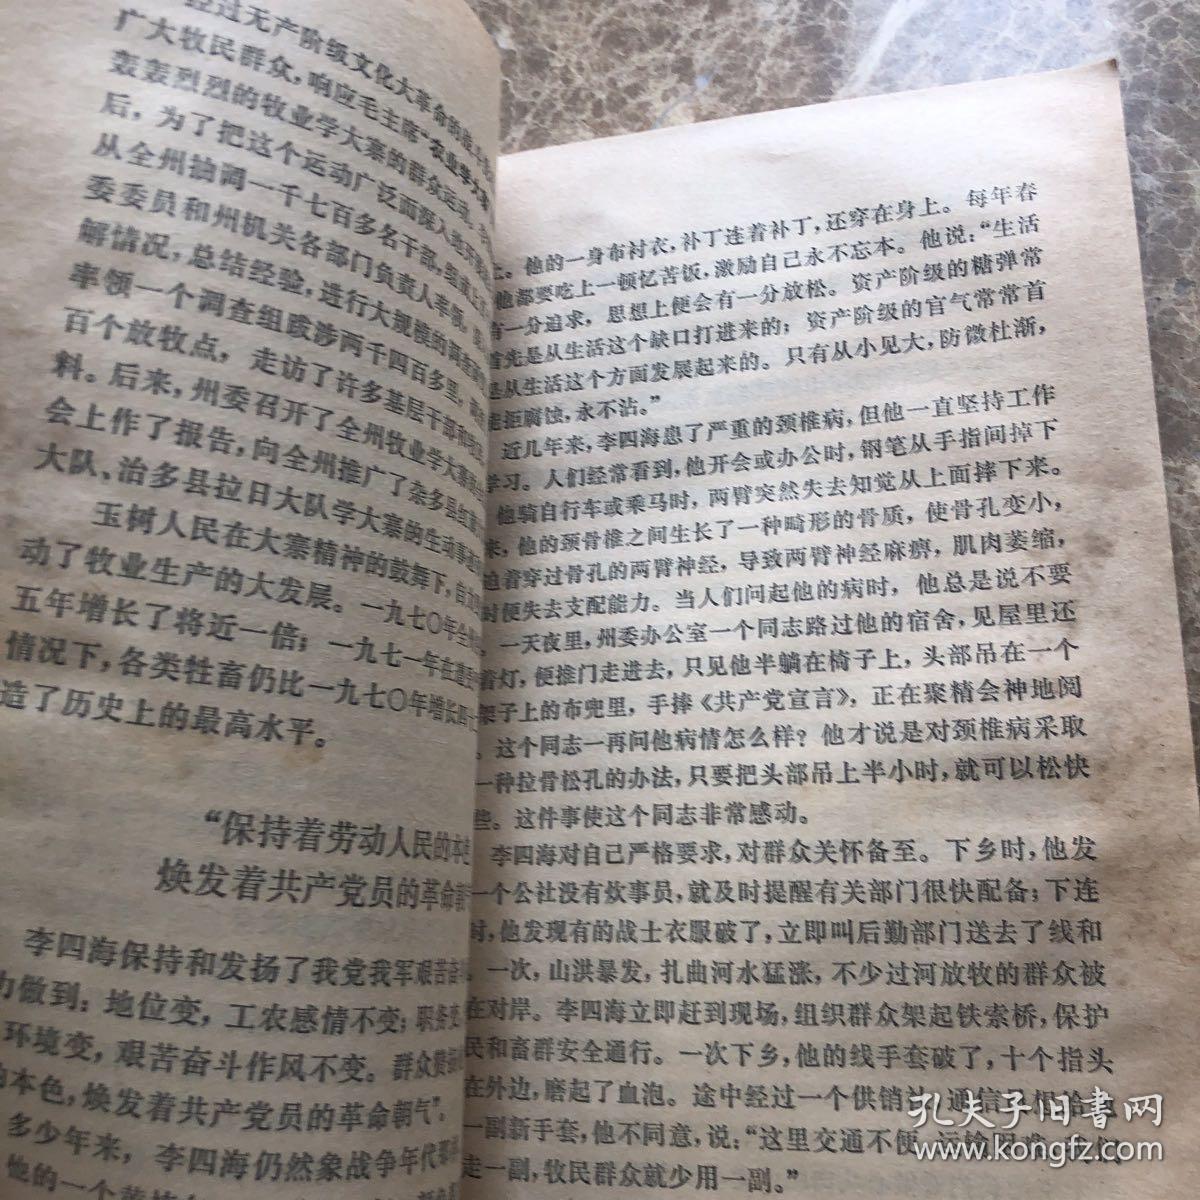 经过无产阶级文化大革命的
广大牧民群众，响应毛主席“农业学大寨
轰轰烈烈的牧业学大寨的群众运动。
后，为了把这个运动广泛而深入地开展
从全州抽调一千七百多名干部，组成
委委员和州机关各部门负责人率领，
解情况，总结经验，进行大规模的调查
率领一个调查组跋涉两千四百多里，
百个放牧点，走访了许多基层干部和
料。后来，州委召开了全州牧业学大寨
会上作了报告，向全州推广了杂多县红
大队、治多县拉日大队学大寨的生动事
玉树人民在大寨精神的鼓舞下，自
动了牧业生产的大发展。一九七〇年全
五年增长了将近一倍；一九七一年在遭受
情况下，各类牲畜仍比一九七〇年增长四十
造了历史上的最高水平。
“保持着劳动人民的本色
焕发着共产党员的革命朝气
李四海保持和发扬了我党我军艰苦奋
力做到：地位变，工农感情不变；职务变
环境变，艰苦奋斗作风不变。群众赞
的本色，焕发着共产党员的革命朝气”。
多少年来，李四海仍然象战争年代那
他的一个黄挎
上。他的一身布衬衣，补丁连着补丁，还穿在身上。每年春
他都要吃上一顿忆苦饭，激励自己永不忘本。他说：“生活
有一分追求，思想上便会有一分放松。资产阶级的糖弹常
首先是从生活这个缺口打进来的；资产阶级的官气常常首
是从生活这个方面发展起来的。只有从小见大，防微杜渐，
能拒腐蚀，永不沾。”
近几年来，李四海患了严重的颈椎病，但他一直坚持工作
学习。人们经常看到，他开会或办公时，钢笔从手指间掉下
他骑自行车或乘马时，两臂突然失去知觉从上面摔下来。
来，他的颈骨椎之间生长了一种畸形的骨质，使骨孔变小，
迫着穿过骨孔的两臂神经，导致两臂神经麻痹，肌肉萎缩，
时便失去支配能力。当人们问起他的病时，他总是说不要
一天夜里，州委办公室一个同志路过他的宿舍，见屋里还
着灯，便推门走进去，只见他半躺在椅子上，头部吊在一个
架子上的布兜里，手捧《共产党宣言》，正在聚精会神地阅
。这个同志一再问他病情怎么样？他才说是对颈椎病采取
一种拉骨松孔的办法，只要把头部吊上半小时，就可以松快
些。这件事使这个同志非常感动。
李四海对自己严格要求，对群众关怀备至。下乡时，他发
一个公社没有炊事员，就及时提醒有关部门很快配备；下连
时，他发现有的战士衣服破了，立即叫后勤部门送去了线和
。一次，山洪暴发，扎曲河水猛涨，不少过河放牧的群众被
在对岸。李四海立即赶到现场，组织群众架起铁索桥，保护
民和畜群安全通行。一次下乡，他的线手套破了，十个指头
在外边，磨起了血泡。途中经过一个供销社，通信员想给他
一副新手套，他不同意，说：“这里交通不便，运输困难，我们
走一副，牧民群众就少用一副。”
孔夫子旧书网
www.kongfz.com